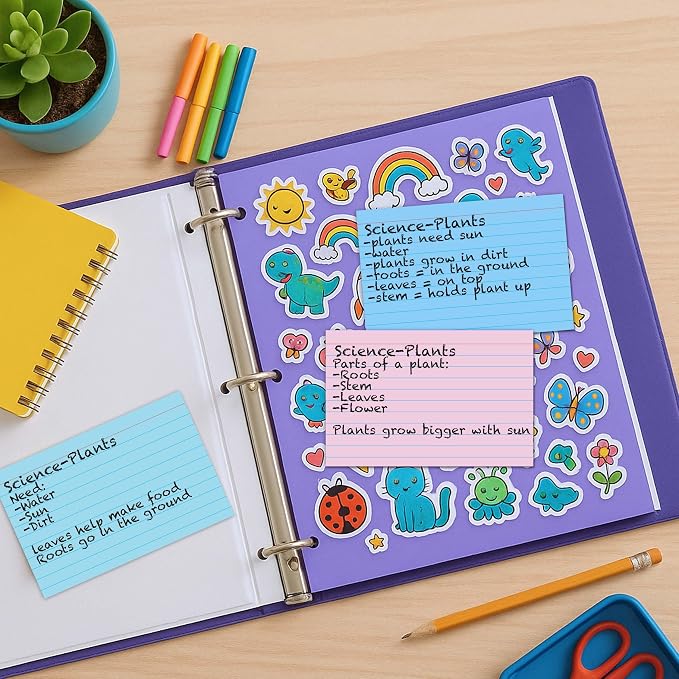 Science-Plants
-plants need sun
-water
-plants grow in dirt
-roots = in the ground
-leaves = on top
-stem = holds plant up
Science-Plants
Parts of a plant:
-Roots
-Stem
-Leaves
-Flower
Plants grow bigger with sun
Science-Plants
Need:
-Water
-Sun
-Dirt
leaves help make food
Roots go in the ground